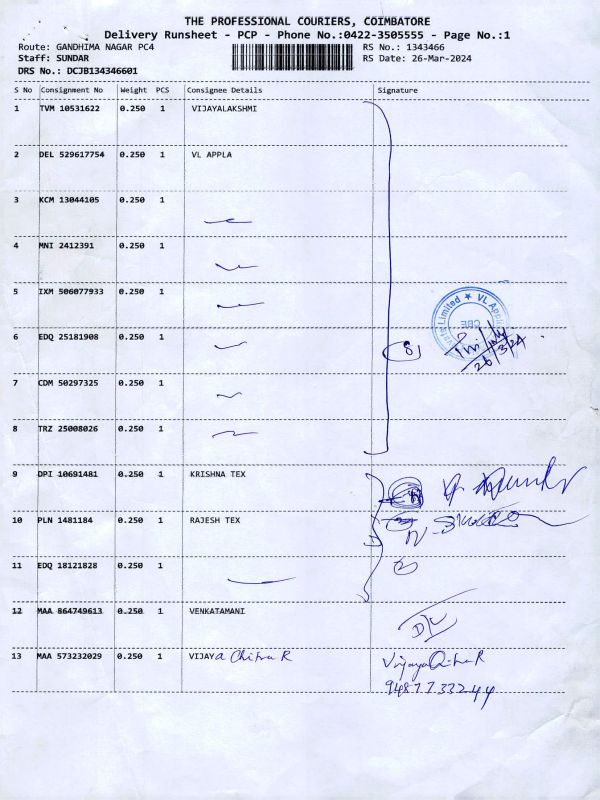 THE PROFESSIONAL COURIERS, COIMBATORE
Delivery Runsheet - PCP - Phone No.:0422-3505555 - Page No.:1
Route: GANDHIMA NAGAR PC4 RS No.: 1343466
Staff: SUNDAR RS Date: 26-Mar-2024
DRS No.: DCJB134346601
S No Consignment No Weight PCS Consignee Details Signature
1 TVM 10531622 0.250 1 VIJAYALAKSHMI
2 DEL 529617754 0.250 1 VL APPLA
3 KCM 13044105 0.250 1
4 MNI 2412391 0.250 1
5 IXM 506077933 0.250 1
VL Appli
vate Limited
CBE
6 EDQ 25181908 0.250 1 8
26/3/24
7 CDM 50297325 0.250 1
8 TRZ 25008026 0.250 1
9 DPI 10691481 0.250 1 KRISHNA TEX
10 PLN 1481184 0.250 1 RAJESH TEX
11 EDQ 18121828 0.250 1 2
12 MAA 864749613 0.250 1 VENKATAMANI
13 MAA 573232029 0.250 1 VIJAYa Chitra R Vijaya Chitra R
9487733244